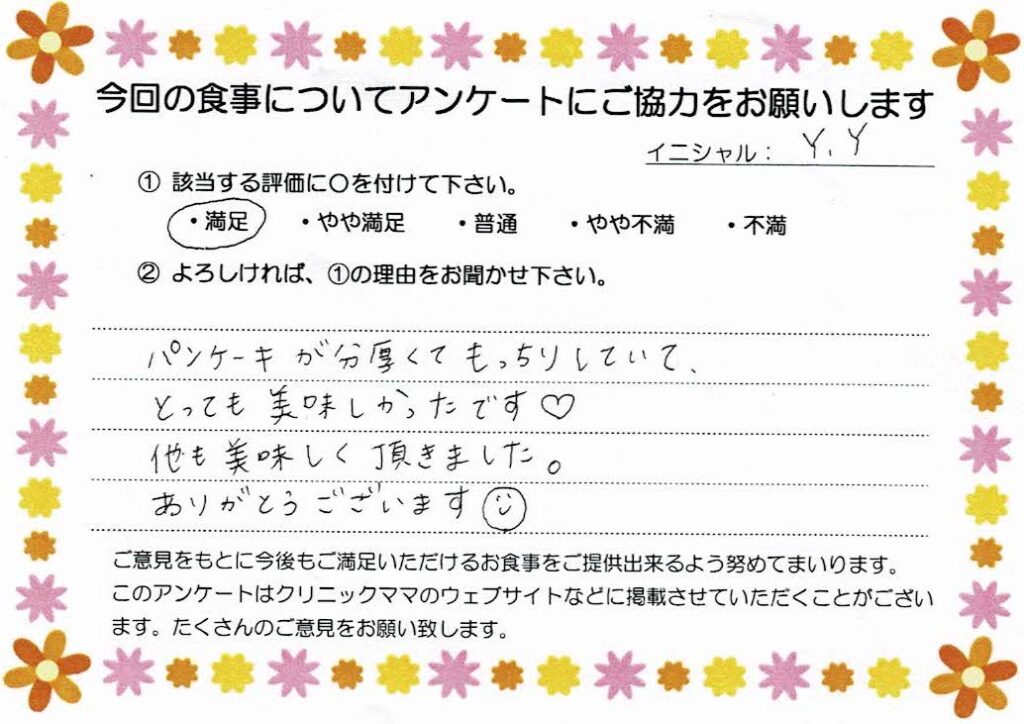 今回の食事についてアンケートにご協力をお願いします
イニシャル： Y.Y
① 該当する評価に〇を付けて下さい。
・満足 ・やや満足 ・普通 ・やや不満 ・不満
② よろしければ、①の理由をお聞かせ下さい。
パンケーキが分厚くてもっちりしていて、
とっても美味しかったです♡
他も美味しく頂きました。
ありがとうございます☺
ご意見をもとに今後もご満足いただけるお食事をご提供出来るよう努めてまいります。
このアンケートはクリニックママのウェブサイトなどに掲載させていただくことがござい
ます。たくさんのご意見をお願い致します。